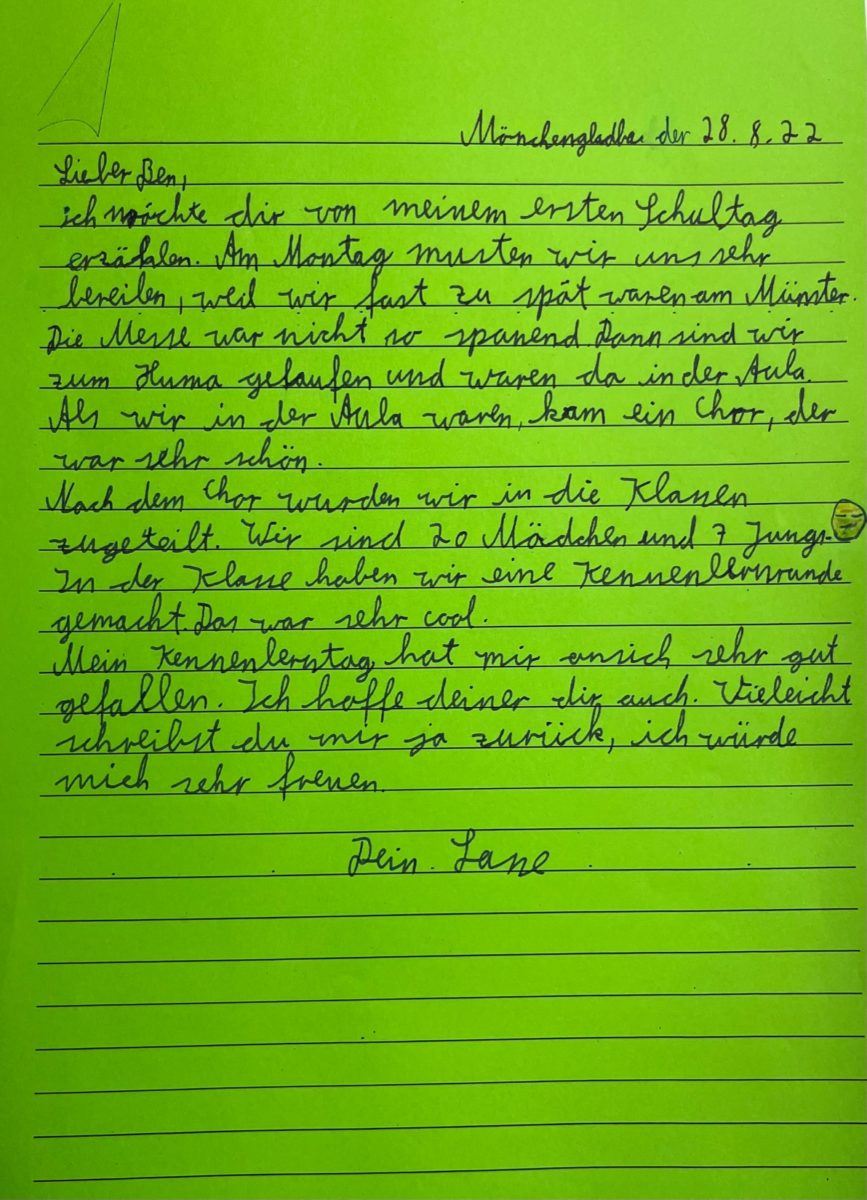 Mönchengladba der 28.8.22
Lieber Ben,
ich möchte dir von meinem ersten Schultag
erzählen. Am Montag musten wir uns sehr
bereilen, weil wir fast zu spät waren am Münster.
Die Messe war nicht so spanend. Dann sind wir
zum Huma gelaufen und waren da in der Aula.
Als wir in der Aula waren, kam ein Chor, der
war sehr schön.
Nach dem Chor wurden wir in die Klassen
zugeteilt. Wir sind 20 Mädchen und 7 Jungs.
In der Klasse haben wir eine Kennenlernrunde
gemacht. Das war sehr cool.
Mein Kennenlerntag hat mir ansich sehr gut
gefallen. Ich hoffe deiner dir auch. Vieleicht
schreibst du mir ja zurück, ich würde
mich sehr freuen.
Dein